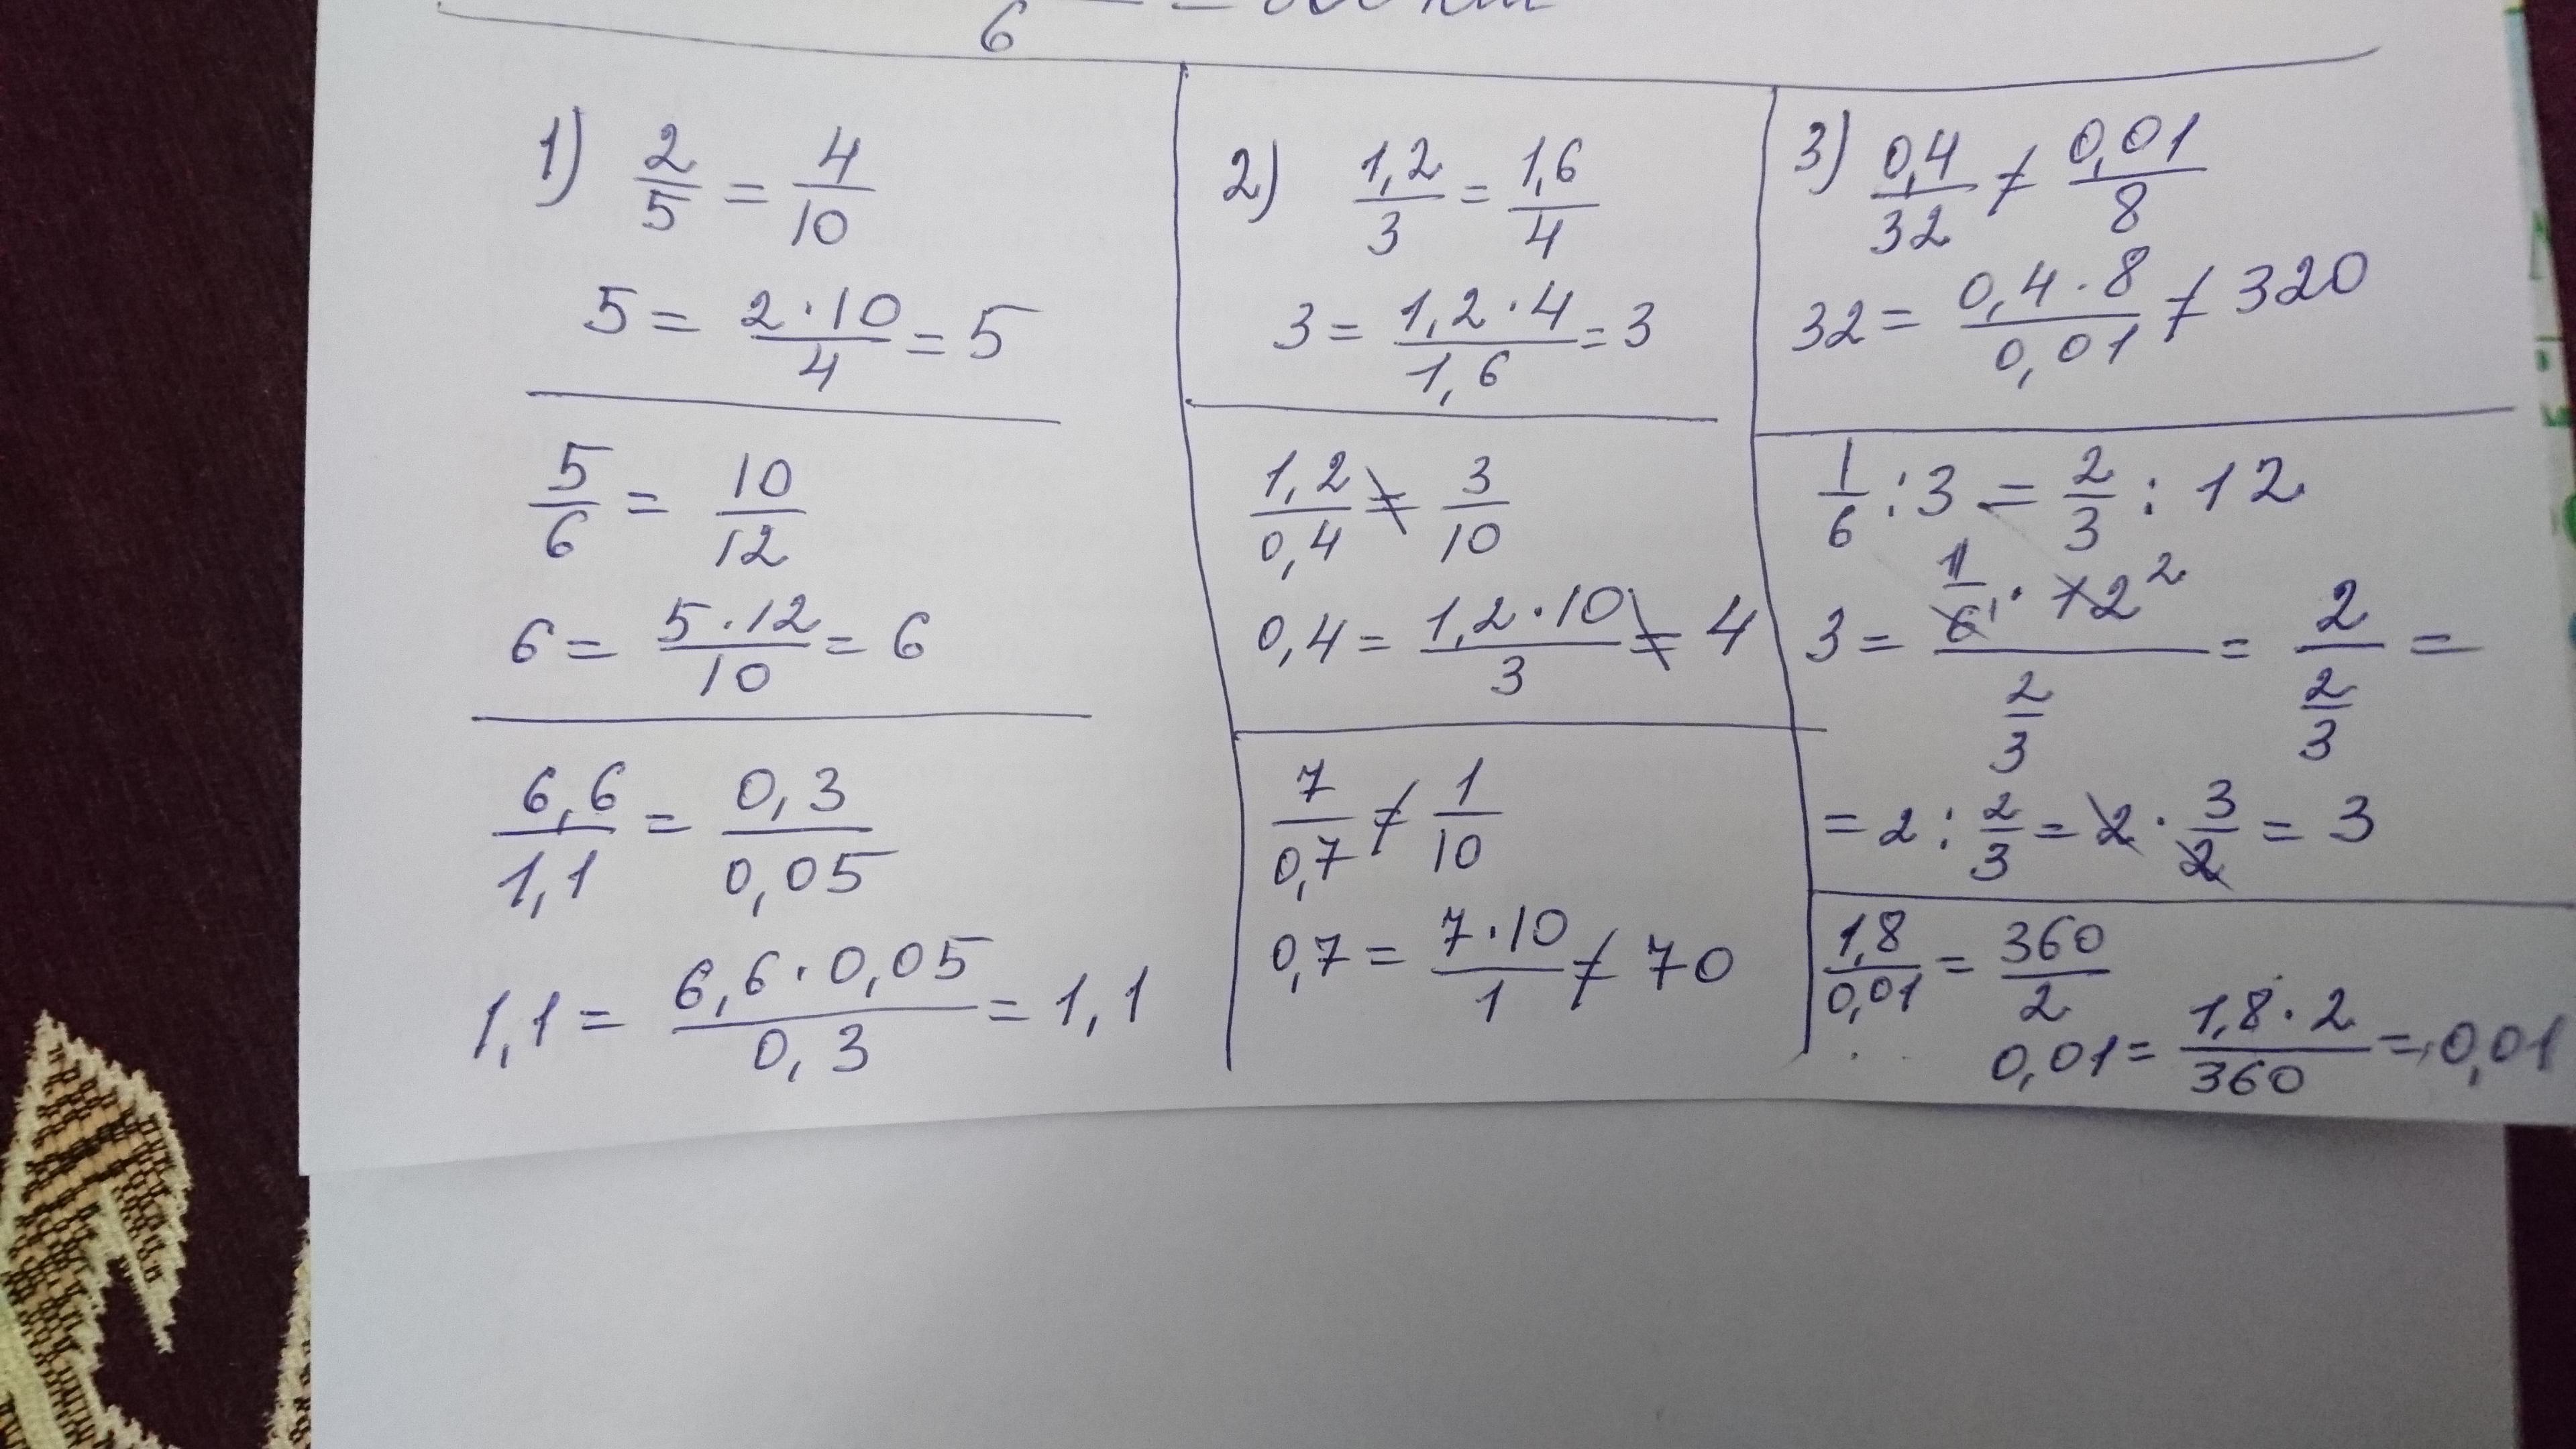 6
1) 2/5 = 4/10
5 = 2·10/4 = 5
5/6 = 10/12
6 = 5·12/10 = 6
6,6/1,1 = 0,3/0,05
1,1 = 6,6·0,05/0,3 = 1,1
2) 1,2/3 = 1,6/4
3 = 1,2·4/1,6 = 3
1,2/0,4 ≠ 3/10
0,4 = 1,2·10/3 ≠ 4
7/0,7 ≠ 1/10
0,7 = 7·10/1 ≠ 70
3) 0,4/32 ≠ 0,01/8
32 = 0,4·8/0,01 ≠ 320
1/6 : 3 = 2/3 : 12
3 = (1/6¹ · 12²)/(2/3) = 2/(2/3) =
= 2 : 2/3 = 2 · 3/2 = 3
1,8/0,01 = 360/2
0,01 = 1,8·2/360 = 0,01